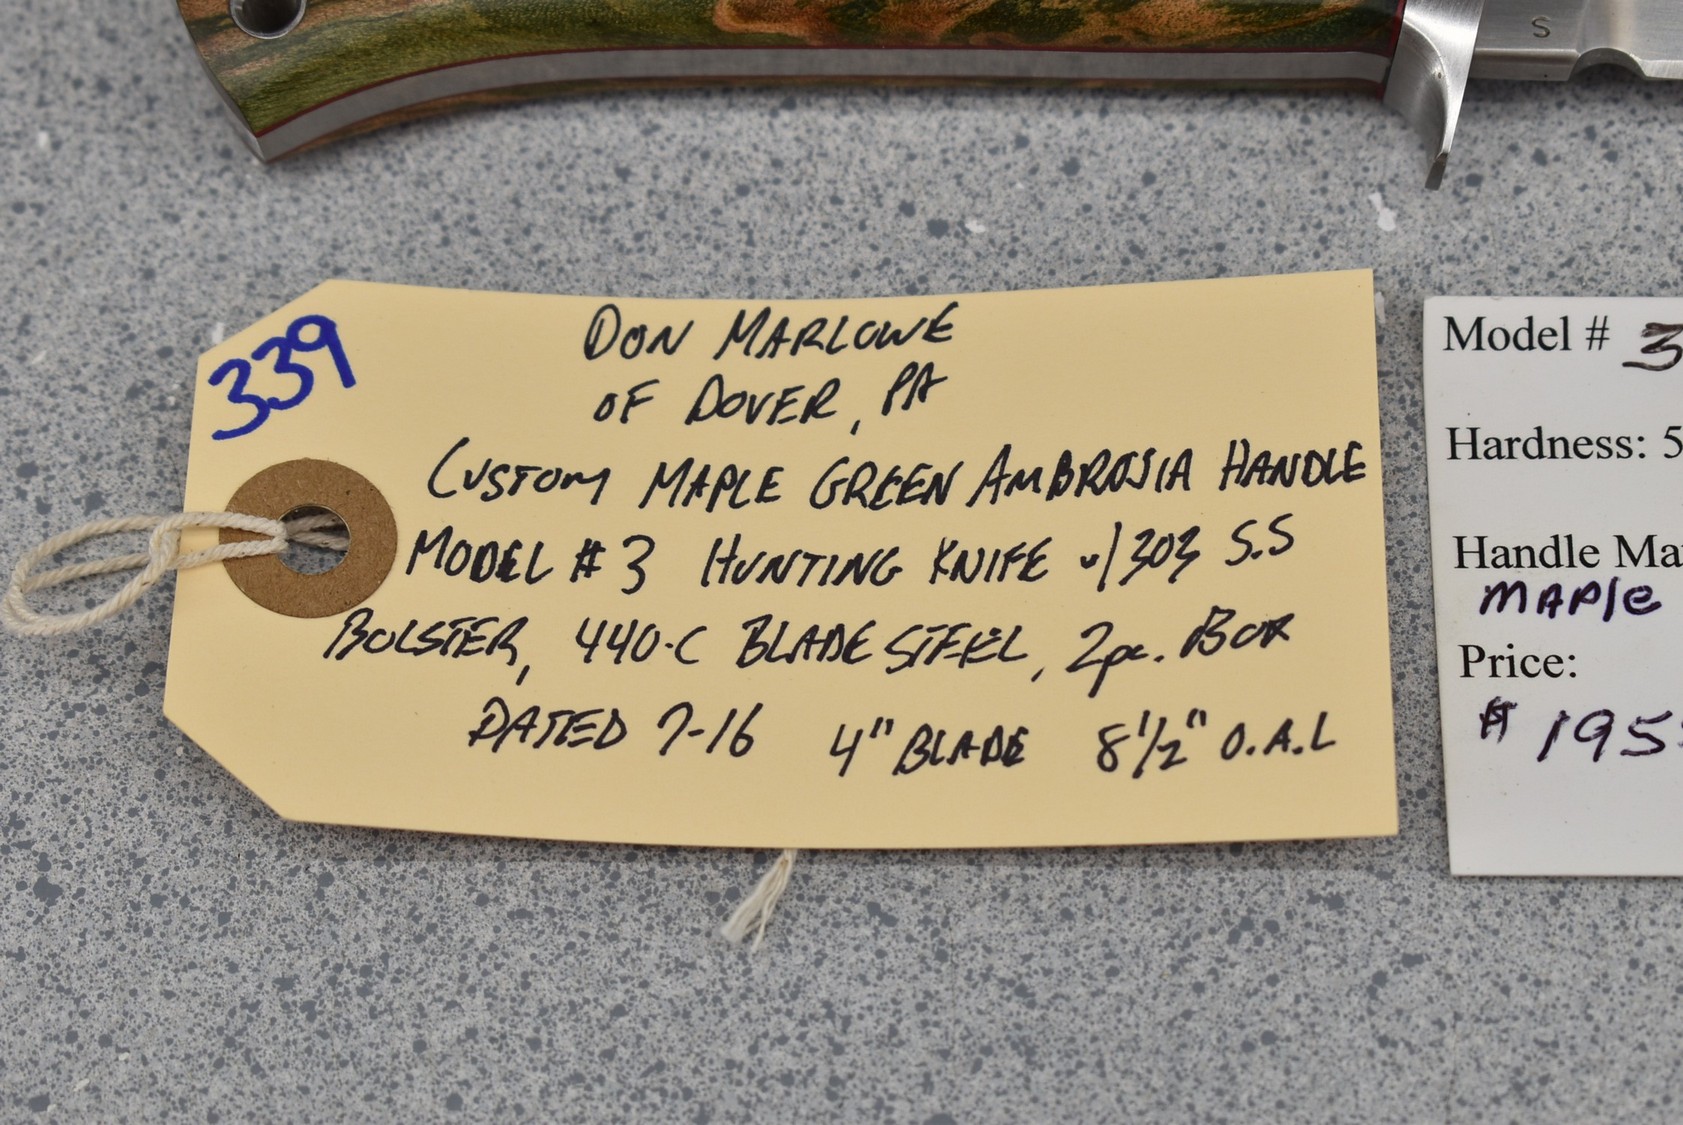 S
339
DON MARLOWE
OF DOVER, PA
CUSTOM MAPLE GREEN AMBROSIA HANDLE
MODEL #3 HUNTING KNIFE w/303 S.S
BOLSTER, 440-C BLADE STEEL, 2pc. BOX
DATED 7-16 4" BLADE 8 1/2" O.A.L
Model # 3
Hardness: 5
Handle Ma
MAPle
Price:
$ 195